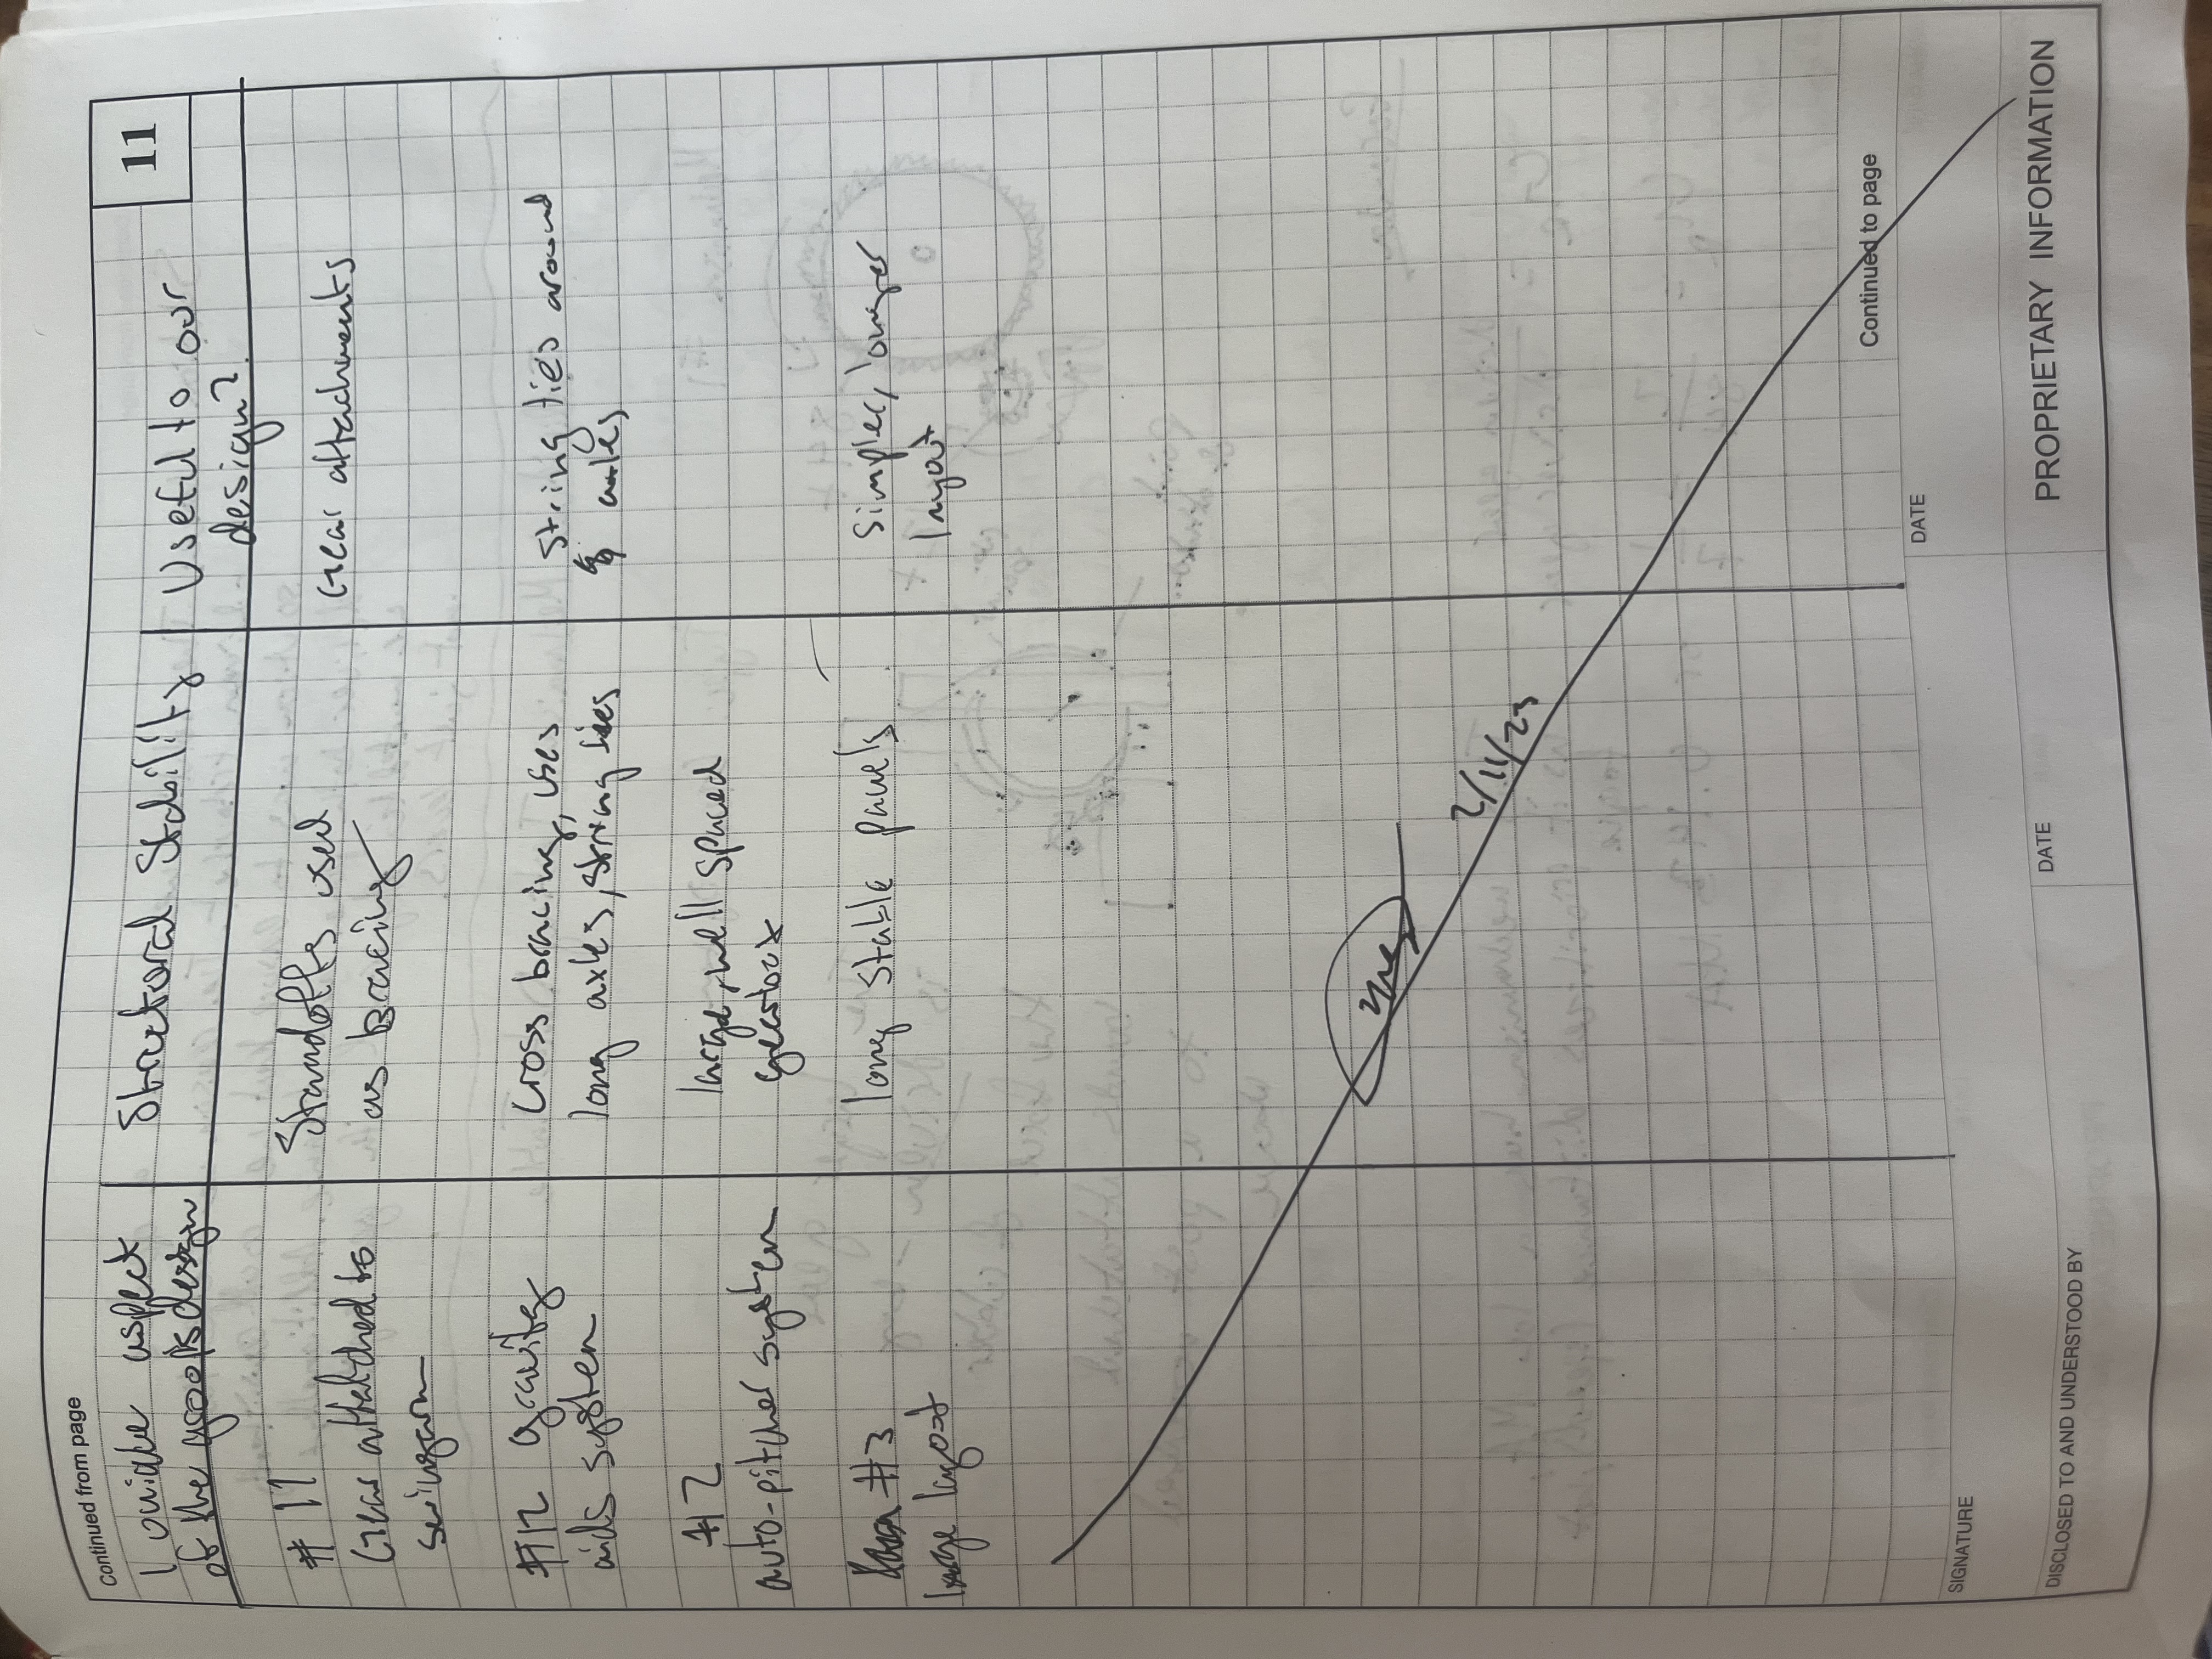 Continued from page
11
1 unique aspect
of the group's design
Structural Stability
Useful to our
design?
# 11
Gear attatched to
swingarm
Standoffs used
as bracing
Gear attachments
#12 gravity
aids system
cross bracing, uses
long axles, string ties
string ties around
axles
#2
auto-pitcher system
large, well spaced
gearbox
#3
large layout
long stable panels
simpler, longer
layout
2/11/23
Continued to page
SIGNATURE
DATE
DISCLOSED TO AND UNDERSTOOD BY
DATE
PROPRIETARY INFORMATION